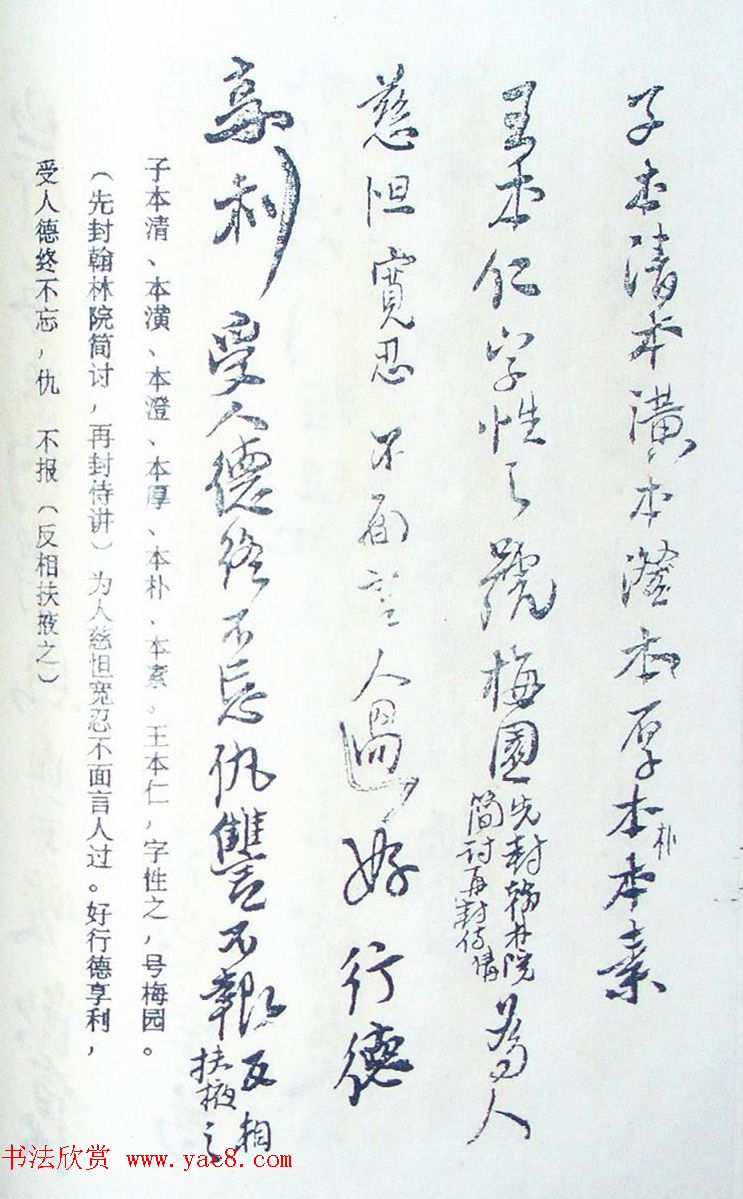 子本清本潢本澄本厚本朴本素
王本仁字性之號梅園先封翰林院简讨再封侍講為人
慈怛寬忍不面言人過好行德
享利受人德終不忘仇讐不報反相扶掖之
子本清、本潢、本澄、本厚、本朴、本素。王本仁，字性之，号梅园。
（先封翰林院简讨，再封侍讲）为人慈怛宽忍不面言人过。好行德享利，
受人德终不忘，仇 不报（反相扶掖之）
书法欣赏 www.yac8.com